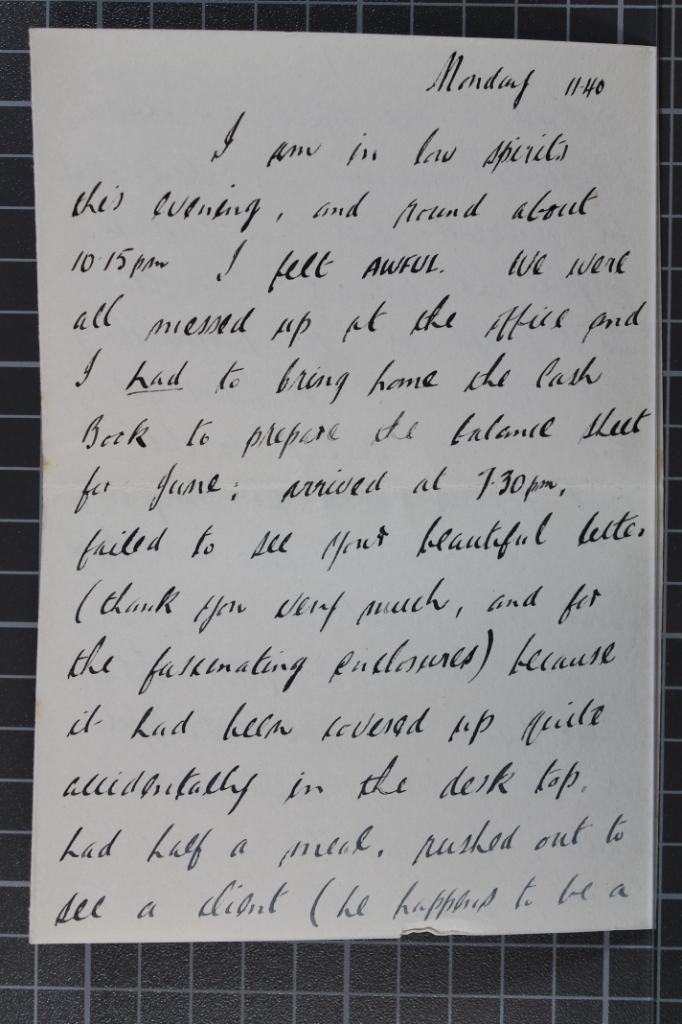 Monday 11.40
I am in low spirits
this evening, and round about
10.15pm I felt AWFUL. We were
all messed up at the office and
I had to bring home the Cash
Book to prepare the balance sheet
for June; arrived at 7.30pm,
failed to see your beautiful letter
(thank you very much, and for
the fascinating enclosures) because
it had been covered up quite
accidentally in the desk top.
had half a meal, rushed out to
see a client (he happens to be a